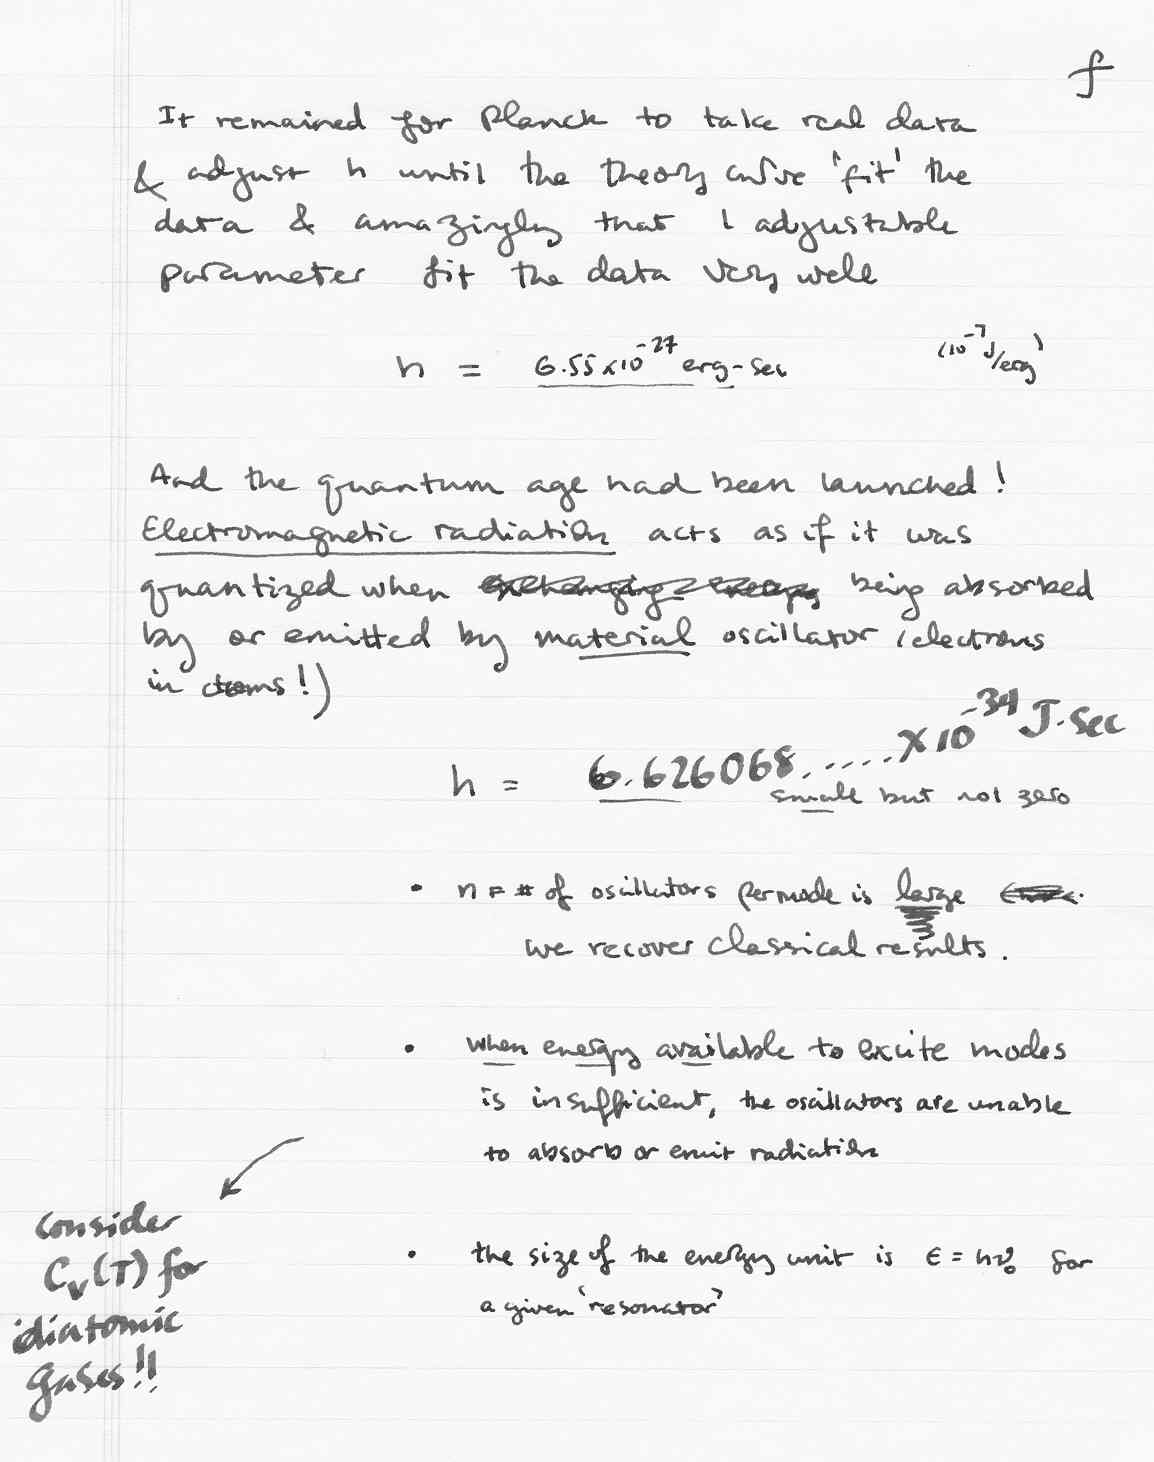 f
It remained for Planck to take real data
& adjust h until the theory curve 'fit' the
data & amazingly that 1 adjustable
parameter fit the data very well
h = 6.55 x 10⁻²⁷ erg-sec (10⁻⁷ J/erg)
And the quantum age had been launched!
Electromagnetic radiation acts as if it was
quantized when exchanging energy being absorbed
by or emitted by material oscillator (electrons
in atoms!)
h = 6.626068..... x 10⁻³⁴ J·sec
small but not zero
• n = # of oscillators per mode is large
we recover classical results.
• when energy available to excite modes
is insufficient, the oscillators are unable
to absorb or emit radiation
consider
Cᵥ(T) for
diatomic
gases!!
• the size of the energy unit is ε = hν₀ for
a given 'resonator'